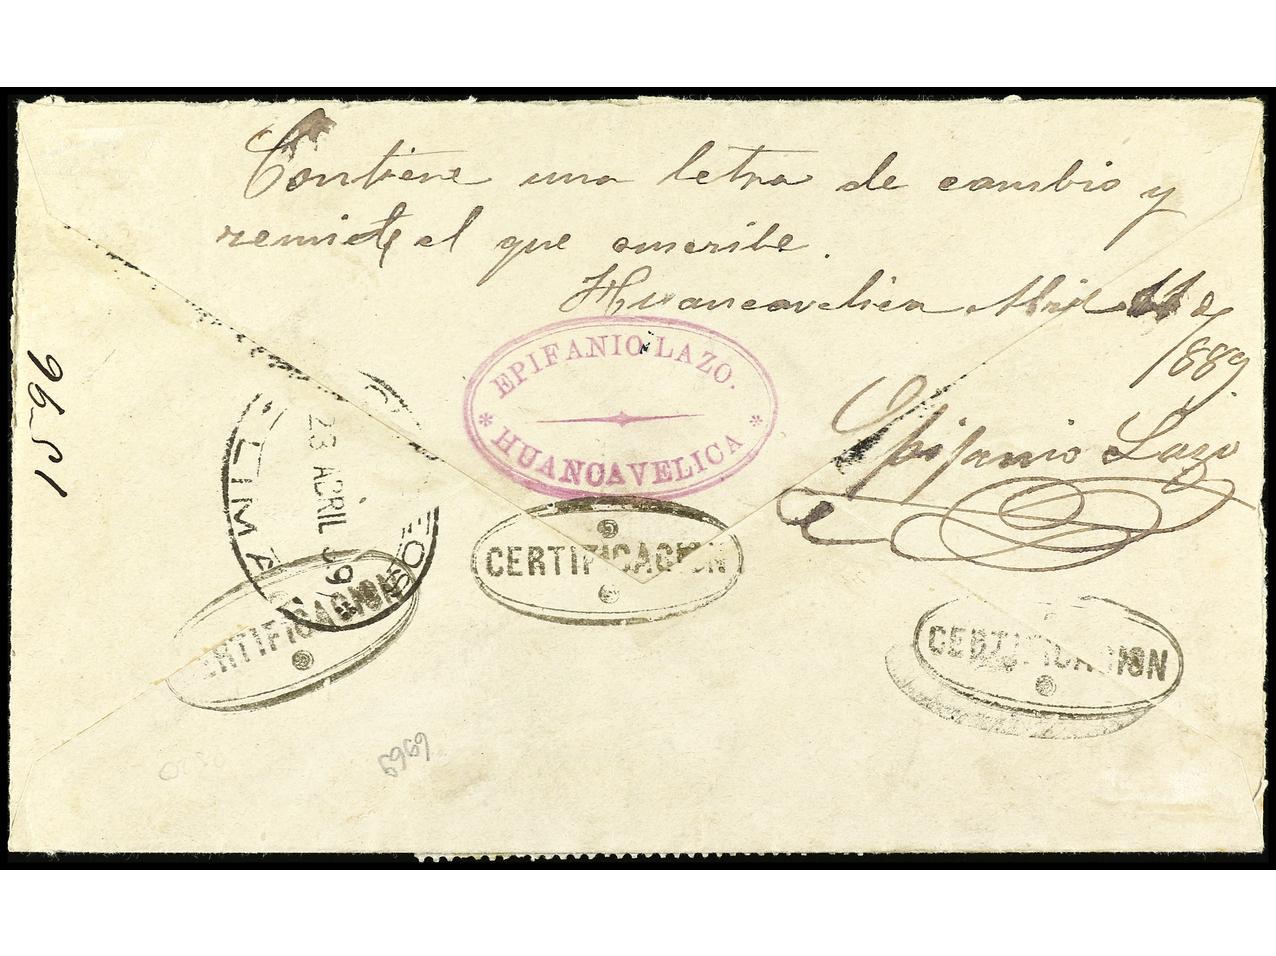 Contiene una letra de cambio y
remite el que suscribe.
Huancavelica Abril 11 de
1889
Epifanio Lazo
EPIFANIO LAZO.
* *
HUANCAVELICA
1596
LIMA
23 ABRIL 89
CERTIFICACION
CERTIFICACION
CERTIFICACION
6969